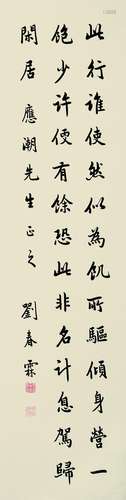 此行誰使然似為飢所驅傾身營一
飽少许便有餘恐此非名計息駕歸
閑居 應潮先生正之 劉春霖